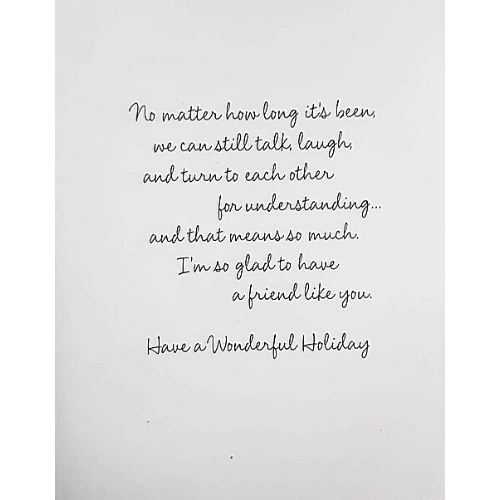 No matter how long it's been,
we can still talk, laugh,
and turn to each other
for understanding...
and that means so much.
I'm so glad to have
a friend like you.
Have a Wonderful Holiday